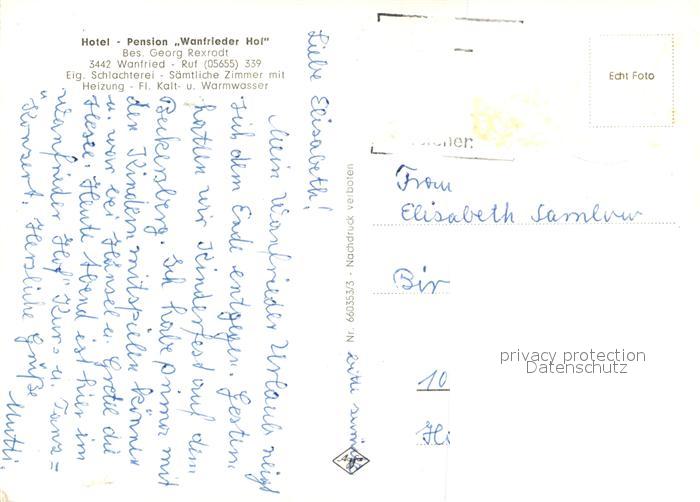 Hotel - Pension „Wanfrieder Hof"
Bes. Georg Rexrodt
3442 Wanfried - Ruf (05655) 339
Eig. Schlachterei - Sämtliche Zimmer mit
Heizung - Fl. Kalt- u. Warmwasser
Liebe Elisabeth!
Mein Wanfrieder Urlaub neigt
sich dem Ende entgegen. Gestern
hatten wir Kinderfest auf dem
Ich habe prima mit
den Kindern mitspielen können
u. war bei Hänsel u. Gretel die
Hexe. Heute Abend ist hier im
„Wanfrieder Hof" Kur- u. Tanz=
Konzert. Herzliche Grüße
Mutti.
Nr. 660353/3 - Nachdruck verboten
Echt Foto
Frau
Elisabeth Samlow
Bir
10
Hi
privacy protection
Datenschutz